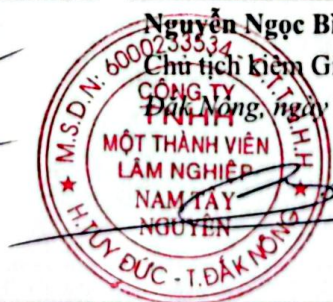 Nguyễn Ngọc B
Chủ tịch kiêm G
Đắk Nông, ngày
M.S.D.N: 6000233534 - C.T.T.N.H.H
CÔNG TY
TNHH
MỘT THÀNH VIÊN
LÂM NGHIỆP
NAM TÂY
NGUYÊN
H.TUY ĐỨC - T.ĐẮK NÔNG